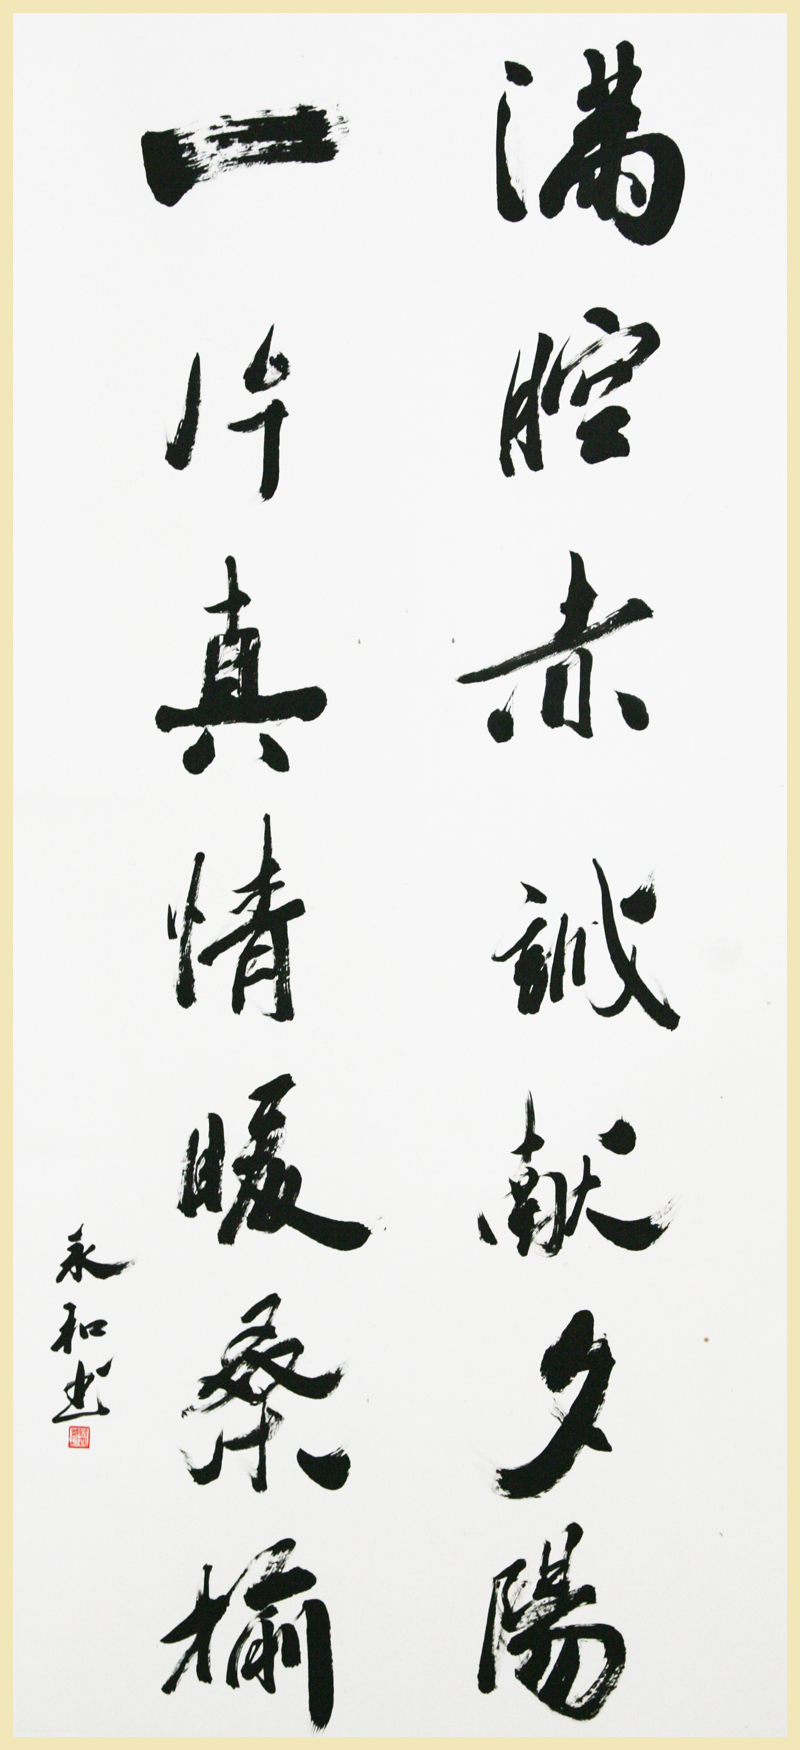 满腔赤誠献夕陽
一片真情暖桑榆
永和书